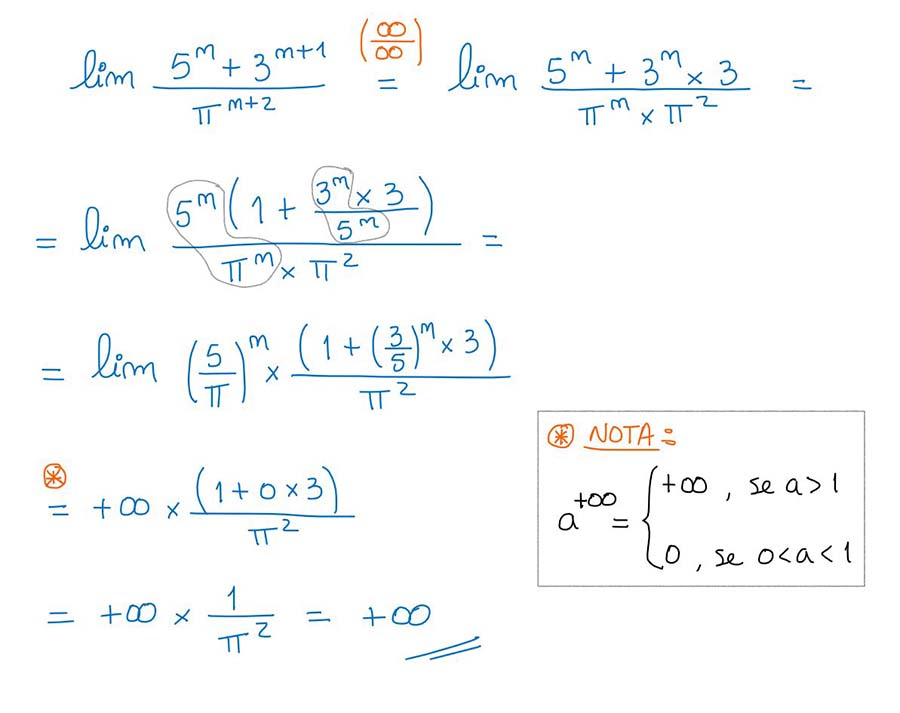 lim (5^m + 3^(m+1)) / π^(m+2) =^(∞/∞) lim (5^m + 3^m × 3) / (π^m × π^2) =
= lim (5^m (1 + (3^m × 3) / 5^m)) / (π^m × π^2) =
= lim (5/π)^m × (1 + (3/5)^m × 3) / π^2
⊛ NOTA:
⊛
= +∞ × (1 + 0 × 3) / π^2
a^(+∞) = { +∞ , se a > 1
0 , se 0 < a < 1
= +∞ × 1 / π^2 = +∞